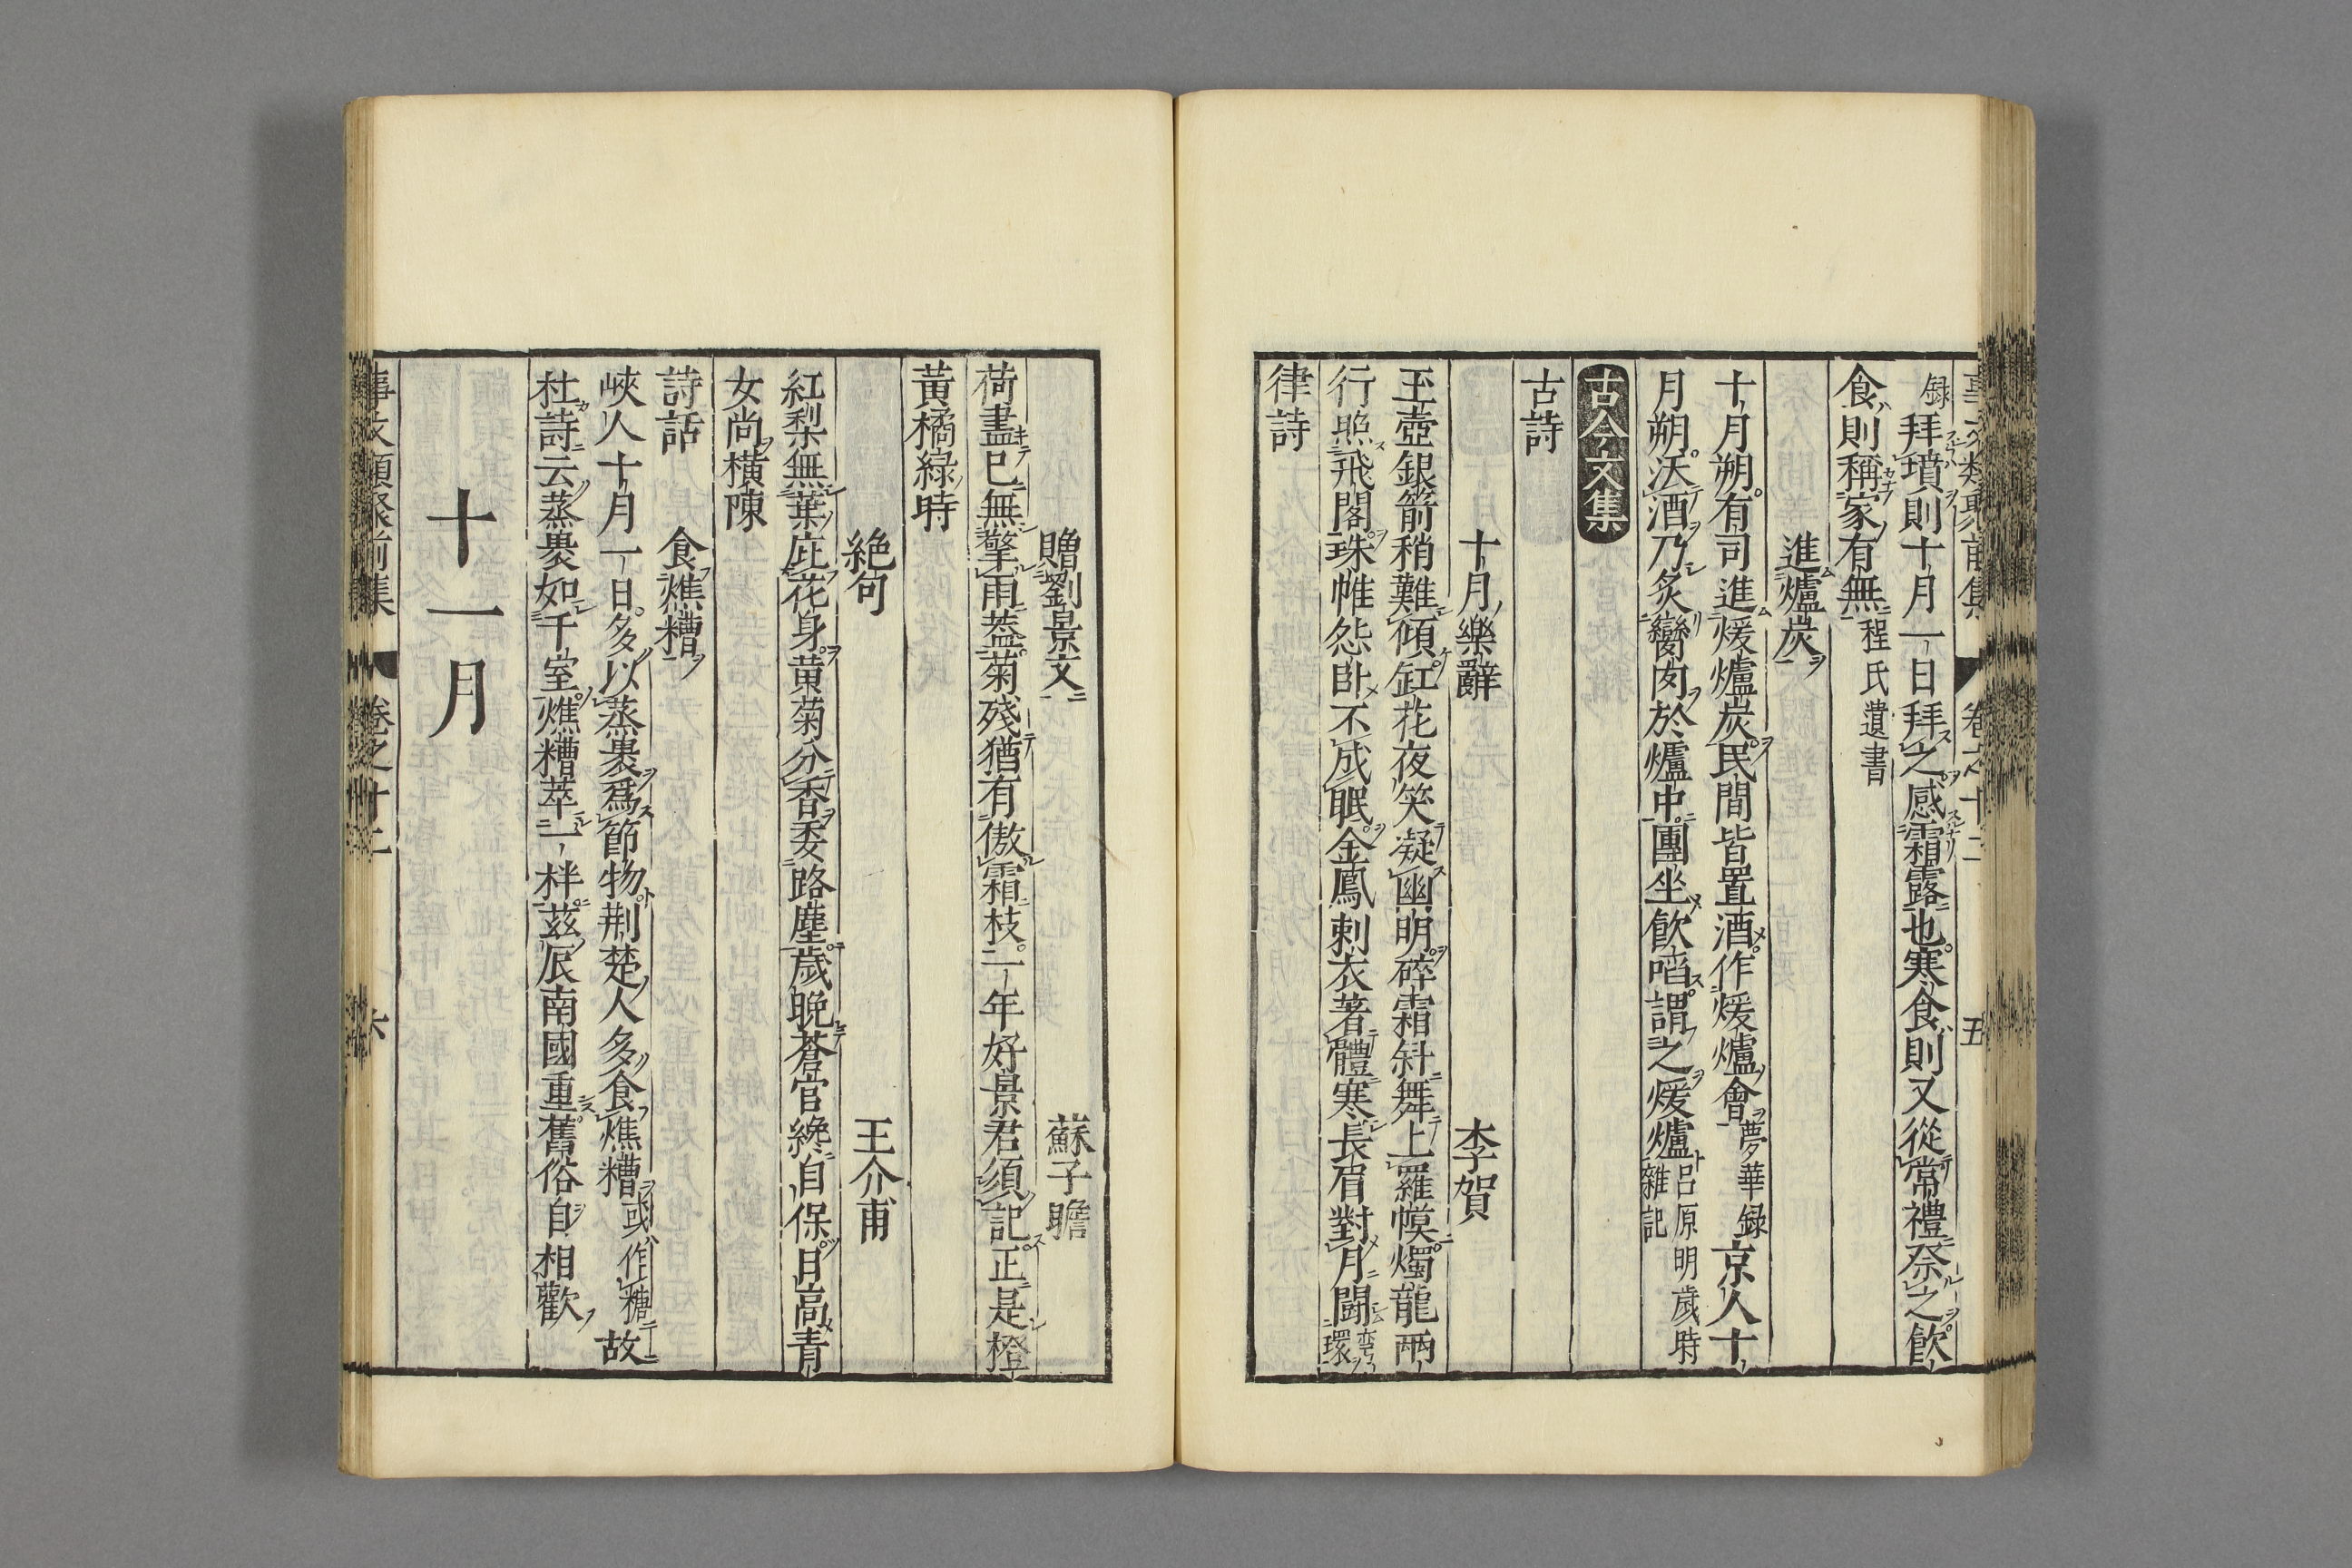 事文類聚前集 卷之十二 五
録 拜墳則十月一日拜之感霜露也寒食則又從常禮祭之飲
食則稱家有無 程氏遺書
進爐炭
十月朔有司進煖爐炭民間皆置酒作煖爐會 夢華録 京人十
月朔沃酒乃炙臠肉於爐中團坐飲啗謂之煖爐 呂原明歲時雜記
古今文集
古詩
十月樂辭 李賀
玉壺銀箭稍難傾缸花夜笑凝幽明碎霜斜舞上羅幙燭龍兩
行照飛閣珠帷怨卧不成眠金鳳刺衣著體寒長眉對月鬪彎環
律詩
贈劉景文 蘇子瞻
荷盡已無擎雨蓋菊殘猶有傲霜枝一年好景君須記正是橙
黃橘緑時
絶句 王介甫
紅梨無葉庇花身黄菊分香委路塵歲晚蒼官纔自保日高青
女尚横陳
詩話 食㷶糟
峽人十月一日多以蒸裹爲節物荆楚人多食㷶糟 或作糖 故
杜詩云蒸裹如千室㷶糟萃一柈兹辰南國重舊俗自相歡
十一月
事文類聚前集 卷之十二 六